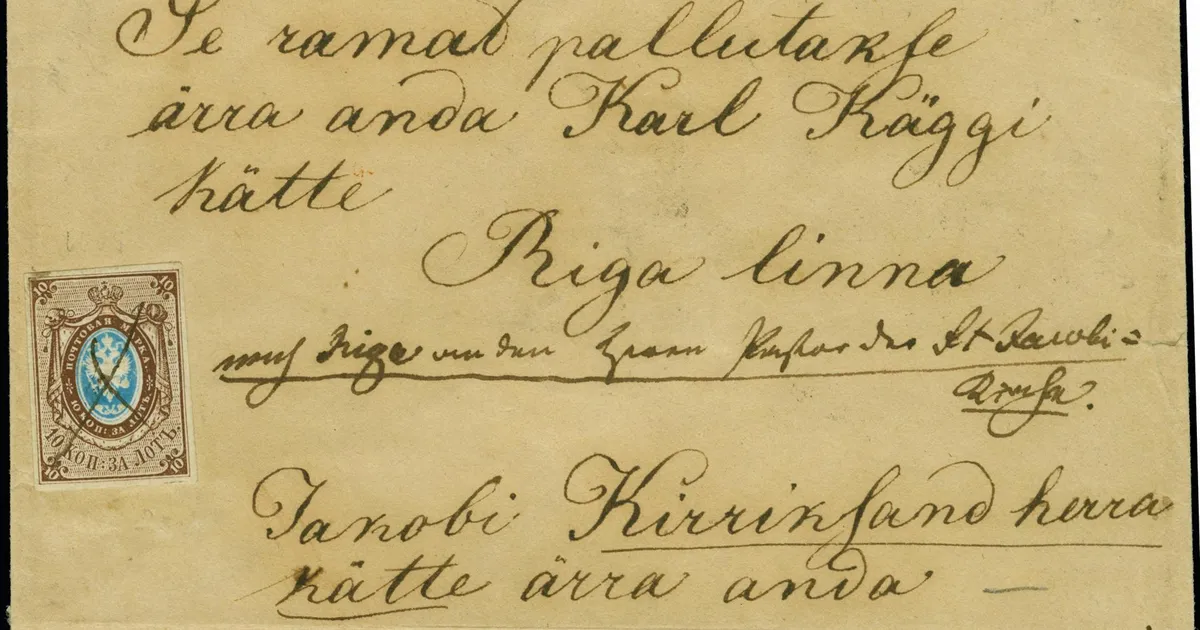 Se ramat pallutakse
ärra anda Karl Käggi
kätte
Riga linna
nach Riga an den Herrn Pastor der St Jacobi=
Kirche.
Jakobi Kirriksand herra
kätte ärra anda —
10 10
ПОЧТОВАЯ МАРКА
10 КОП: ЗА ЛОТЪ.
10 КОП: ЗА ЛОТЪ.
10 10